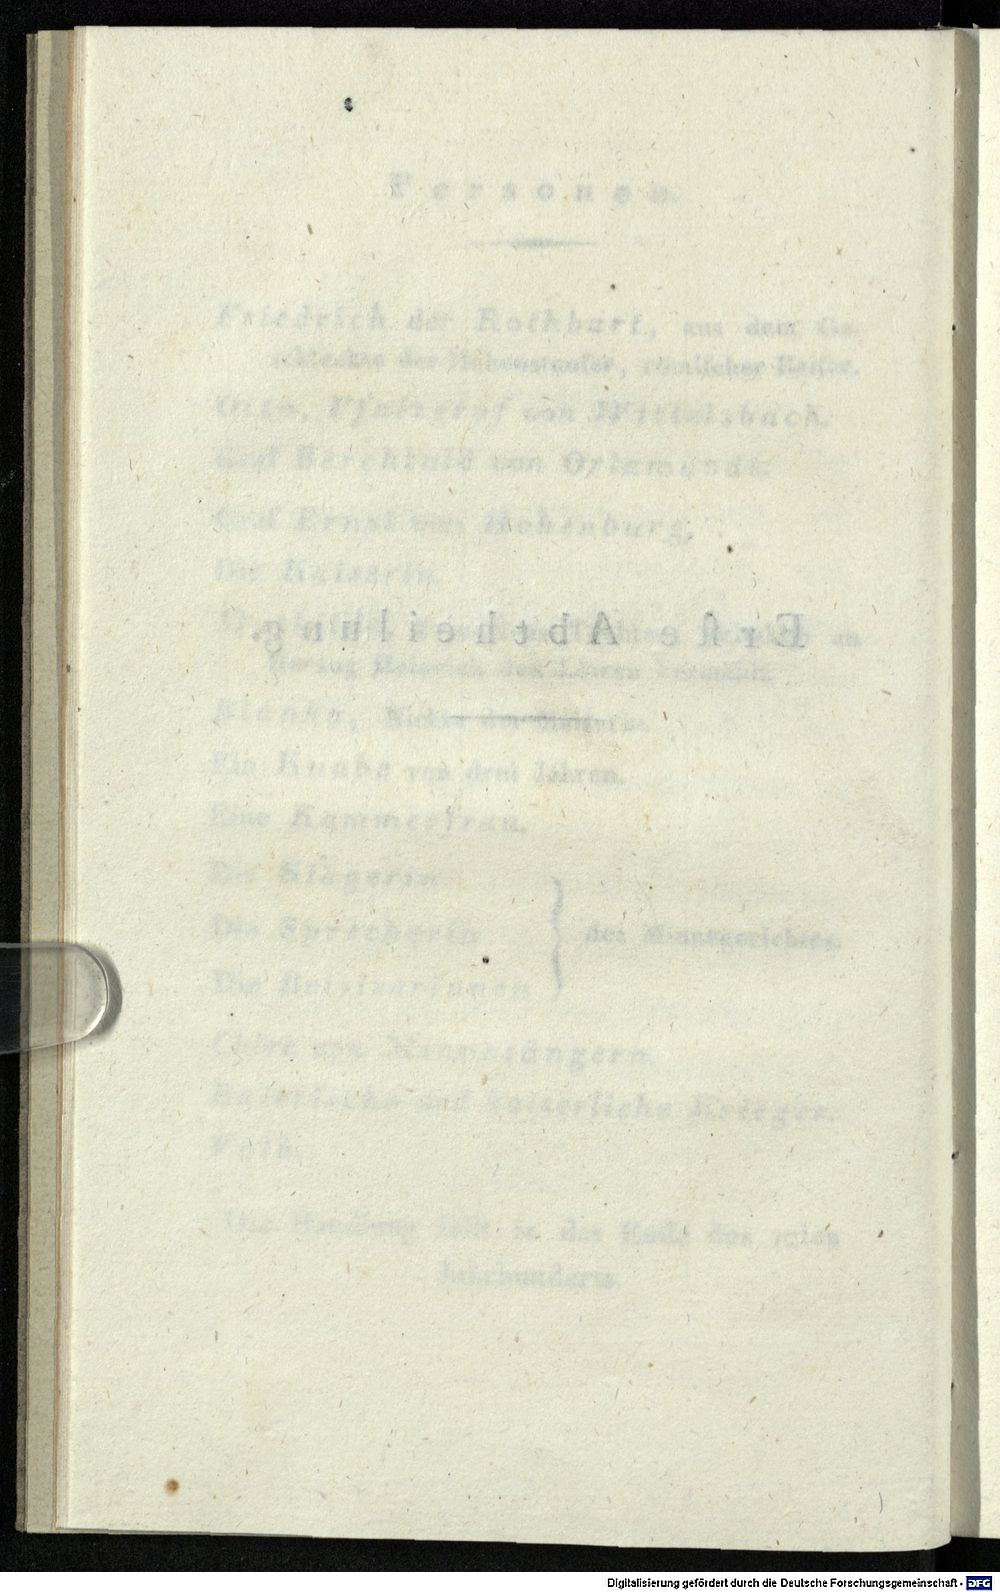 Personen.
Friedrich der Rothbart, aus dem Ge-
schlechte der Hohenstaufer, römischer Kaiser.
Otto, Pfalzgraf von Wittelsbach.
Graf Berchtold von Orlamunda.
Graf Ernst von Hohenburg.
Die Kaiserin.
Erste Abtheilung.
an
Herzog Heinrich den Löwen vermählt.
Blanka, Nichte der Kaiserin.
Ein Knabe von drei Jahren.
Eine Kammerfrau.
Die Klägerin
Die Sprecherin
des Minnegerichtes.
Die Beisizerinnen
Chöre von Minnesängern.
Baierische und kaiserliche Krieger.
Volk.
Die Handlung fällt in das Ende des 12ten
Jahrhunderts.
Digitalisierung gefördert durch die Deutsche Forschungsgemeinschaft - DFG